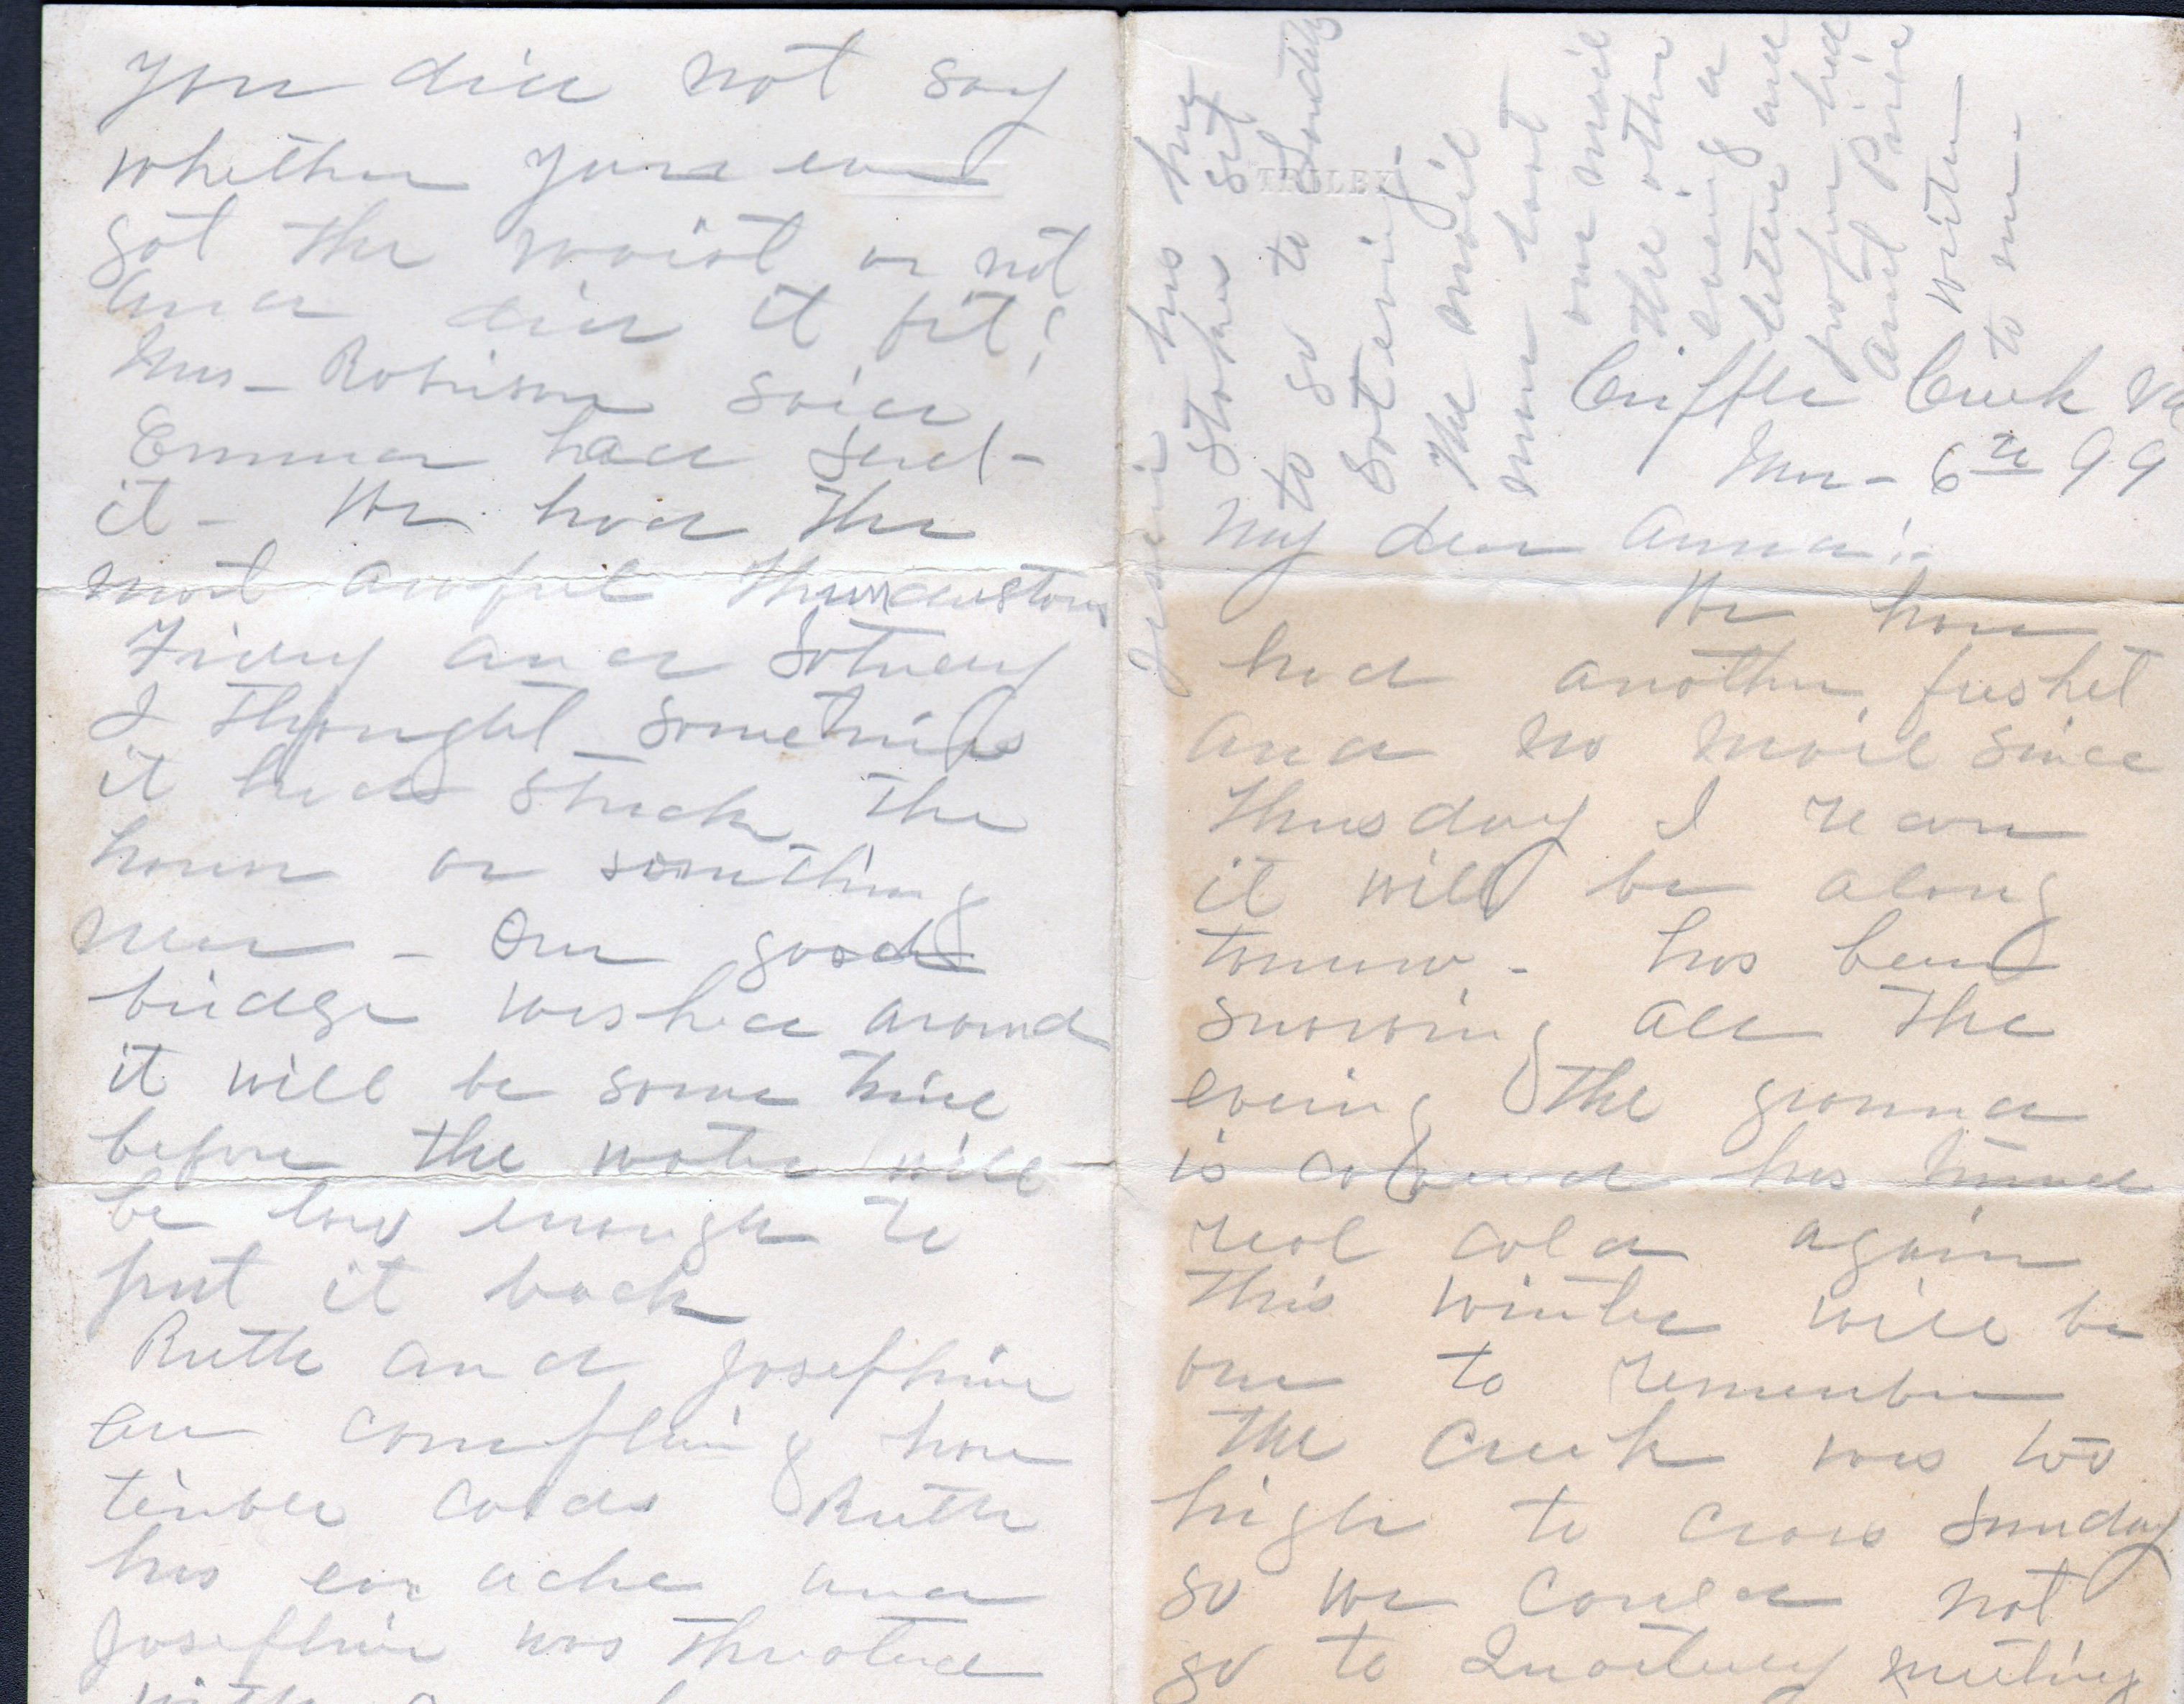 Criffle Creek Va
Mar - 6th 99
My dear Anna :-
We have
had another freshet
and no mail since
Thusday I recon
it will be along
tomorow - has been
snowing all the
evening the ground
is covered has turned
real cold again
This winter will be
one to remember
The creek was too
high to cross Sunday
so we could not
go to Quarterly meeting
you did not say
whether you ever
got the waist or not
and did it fit?
Mrs - Robinson said
Emma had sent
it - We had the
most awful thunderstorm
Friday and Saturday
I thought sometimes
it had struck the
house or something
near - Our good
bridge washed around
it will be some time
before the water will
be low enough to
put it back
Ruth and Josephine
are complaining have
terrible colds Ruth
has ear ache and
Josephine was threatened
with
Jessie has her
Stokes set
to go to Sunday
The mail
man lost
one mail
the other
evening a
letter and
from had
Aunt
written
to me -
TROLEY